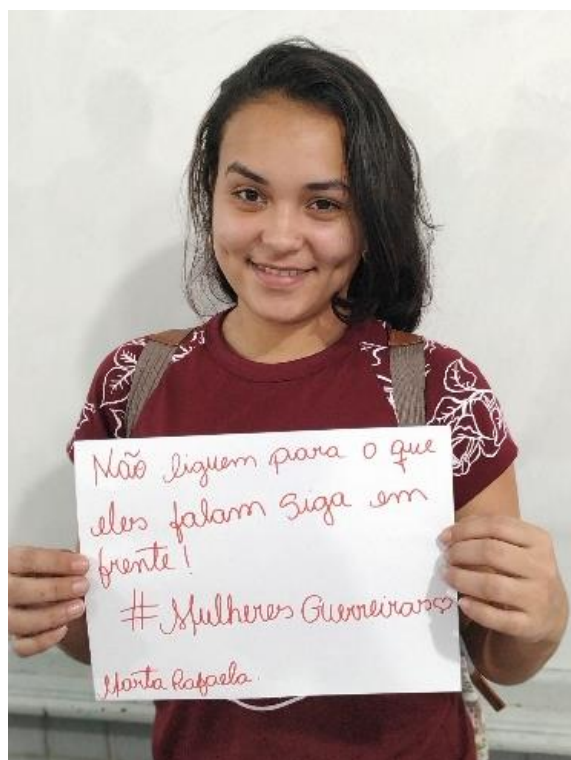 Não liguem para o que
eles falam siga em
frente!
#Mulheres Guerreiras♡
Marta Rafaela.